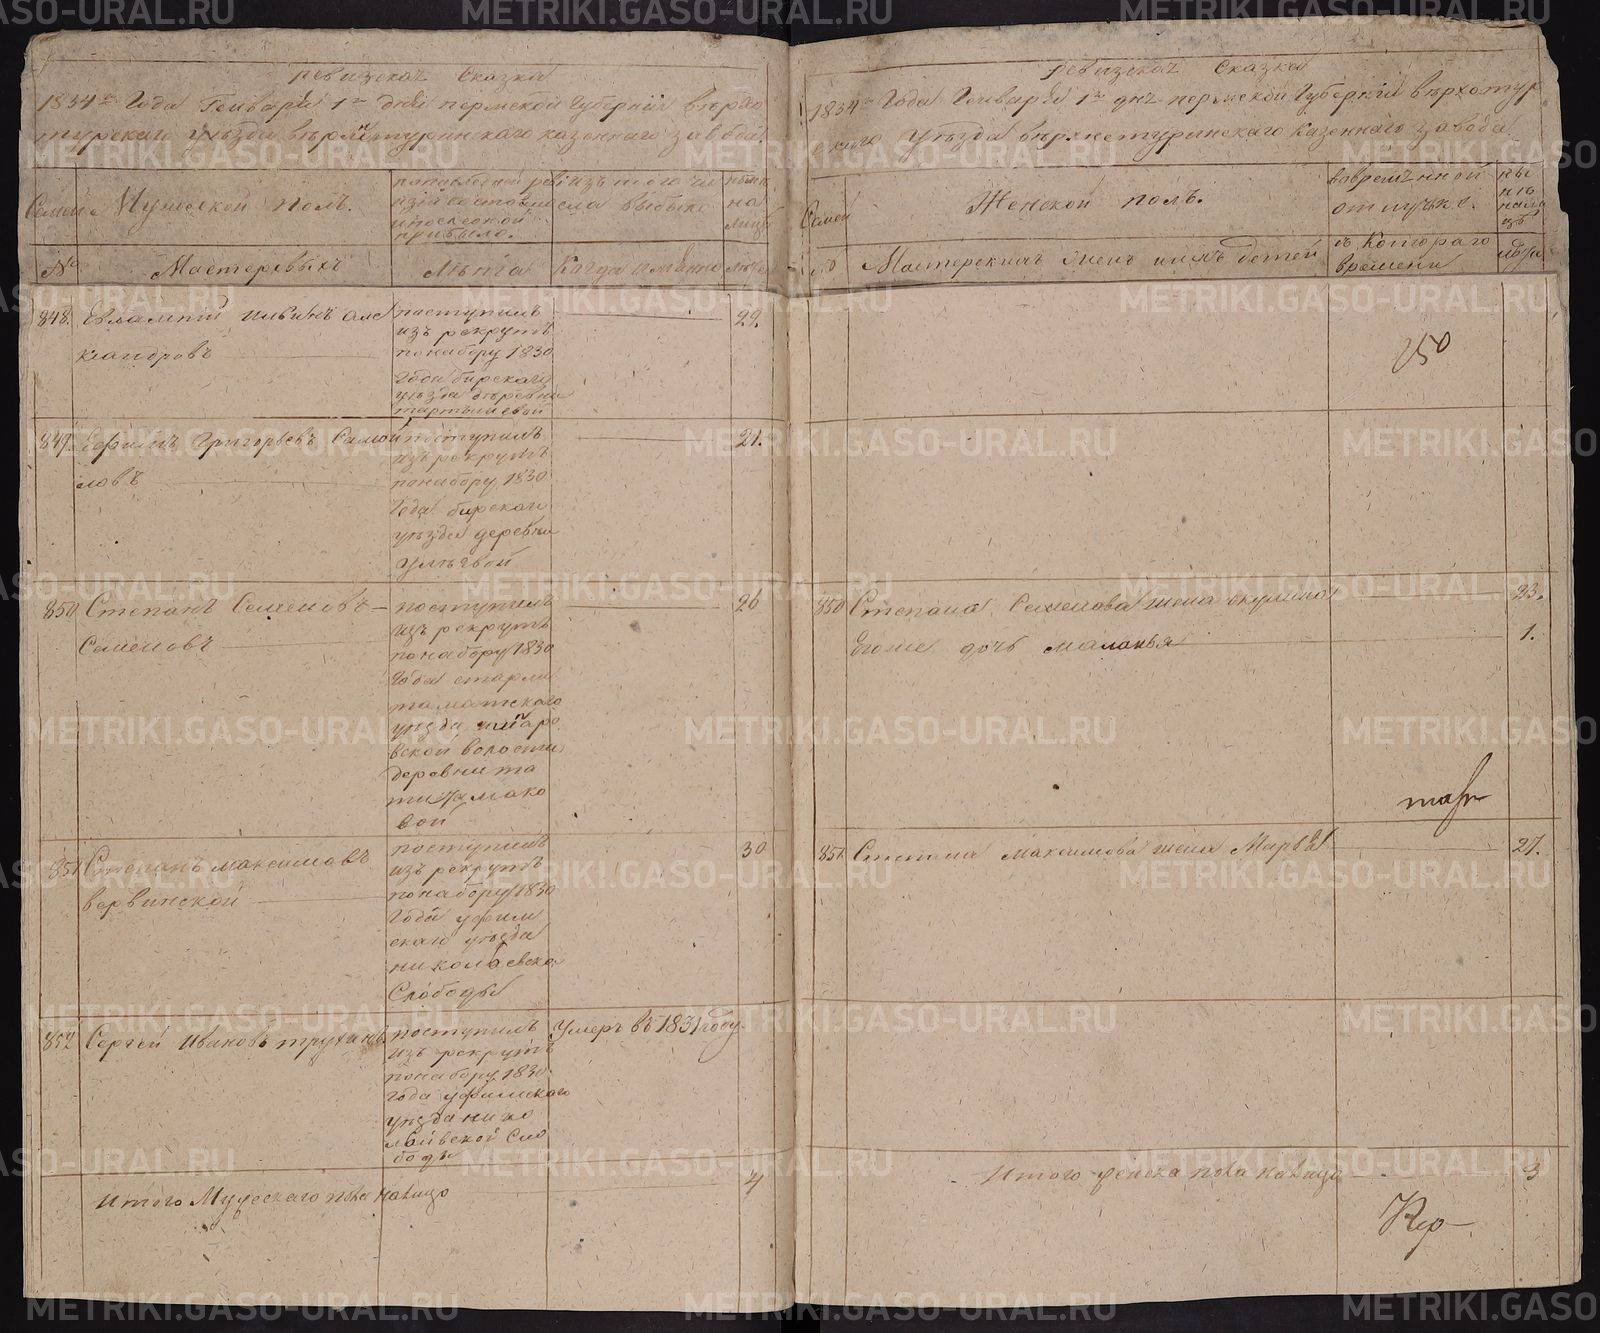 Ревизская Сказка
1834го Года Генваря 1го дня пермской Губернiи верхо
турского уезда верхнетуринского казенного завода
Семьи
Мужеской полъ.
по последней ревизiи состояло и после оной прибыло.
изъ того числа выбыло
ныне на лицо
№
Мастеровыхъ
Лѣта
Когда именно
лѣта
848.
Евлампiй Ильинъ Алек
сандровъ
поступилъ
изъ рекрутъ
понабору 1830
Года бирскаго
уѣзда деревни
29.
849.
Ефимъ Григорьевъ Самой
ловъ
поступилъ
изъ рекрутъ
понабору 1830
Года бирскаго
уѣзда деревни
21.
850
Степанъ Семеновъ
Семеновъ
поступилъ
изъ рекрутъ
понабору 1830
Года стерли
таматскаго
уѣзда
вской волости
деревни
26
851
Степанъ максимовъ
вервинской
поступилъ
изъ рекрутъ
понабору 1830
Года уфим
скаго уѣзда
николаевско
Слободы
30
852
Сергей Ивановъ
поступилъ
изъ рекрутъ
понабору 1830
года уфимскаго
уѣзда нико
лаевской Сло
боды
Умеръ въ 1831 году
Итого Мужескаго пола налицо
4
Ревизская Сказка
1834го Года Генваря 1го дня пермской Губернiи верхотур
скаго Уѣзда верхнетуринскаго Казеннаго завода
Семьи
Женской полъ.
вовременной
отлучке.
ны
не
нали
цѣ
№
Мастерскихъ женъ ихъ детей
съ Котораго
времени
лѣта
250
850
Степана Семенова жена Акулина
23.
Егоже дочь маланья
1.
851
Степана Максимова жена Марфа
27.
Итого женска пола налицо
3
METRIKI.GASO-URAL.RU